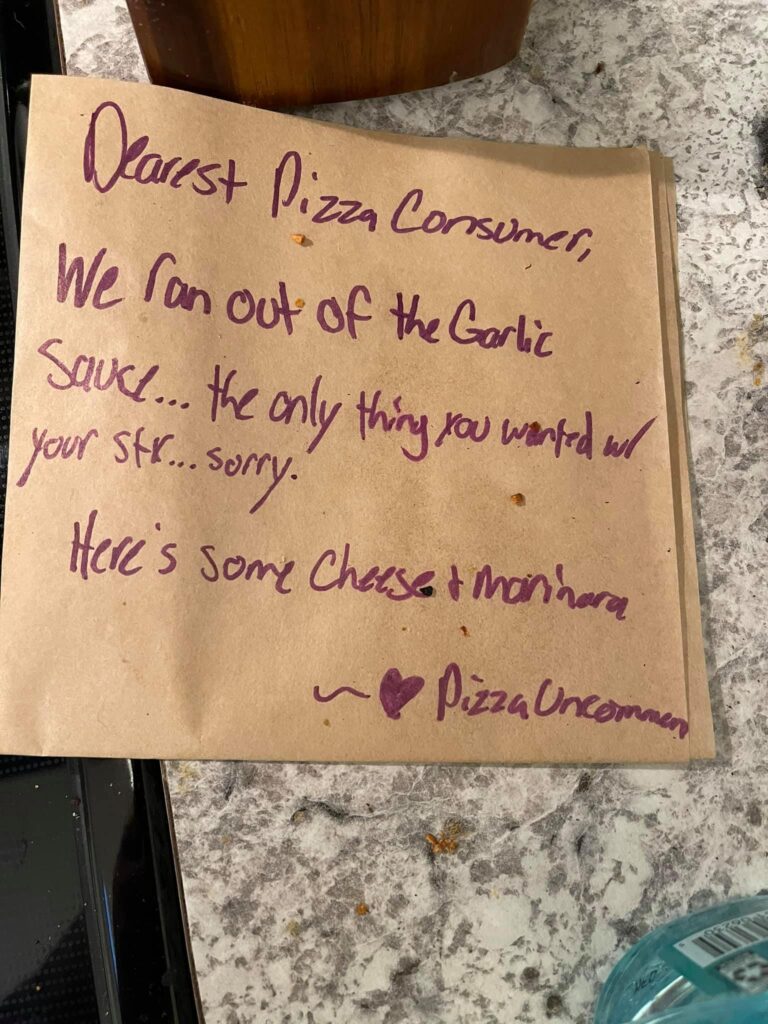 Dearest Pizza Consumer,
We ran out of the Garlic
Sauce... the only thing you wanted w/
your stx... sorry.
Here's some Cheese + Marinara
~ ♥ Pizza Uncommon